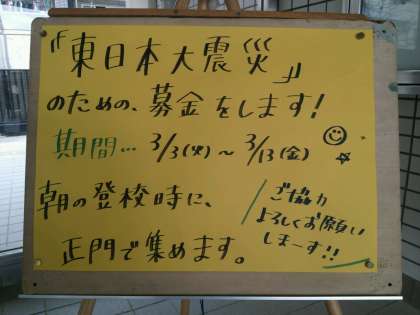 『東日本大震災』
のための、募金をします！
期間… 3/3(火)～3/13(金)
朝の登校時に、
正門で集めます。
ご協力
よろしくお願い
しまーす!!